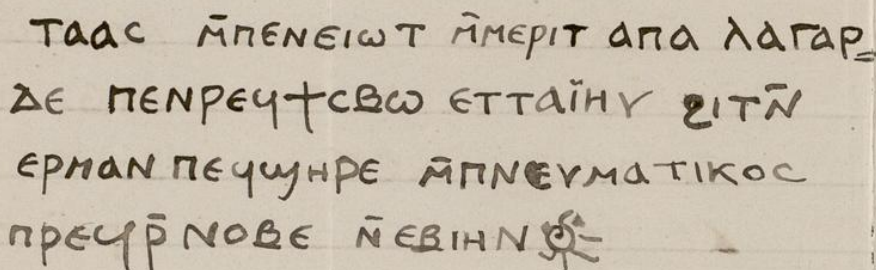 ⲧⲁⲁⲥ ⲙ̄ⲡⲉⲛⲉⲓⲱⲧ ⲙ̄ⲙⲉⲣⲓⲧ ⲁⲡⲁ ⲗⲁⲅⲁⲣ=
ⲇⲉ ⲡⲉⲛⲣⲉϥϯⲥⲃⲱ ⲉⲧⲧⲁⲓ̈ⲏⲩ ϩⲓⲧⲛ̄
ⲉⲣⲙⲁⲛ ⲡⲉϥϣⲏⲣⲉ ⲙ̄ⲡⲛⲉⲩⲙⲁⲧⲓⲕⲟⲥ
ⲡⲣⲉϥⲣ̄ⲛⲟⲃⲉ ⲛ̄ⲉⲃⲓⲏⲛ